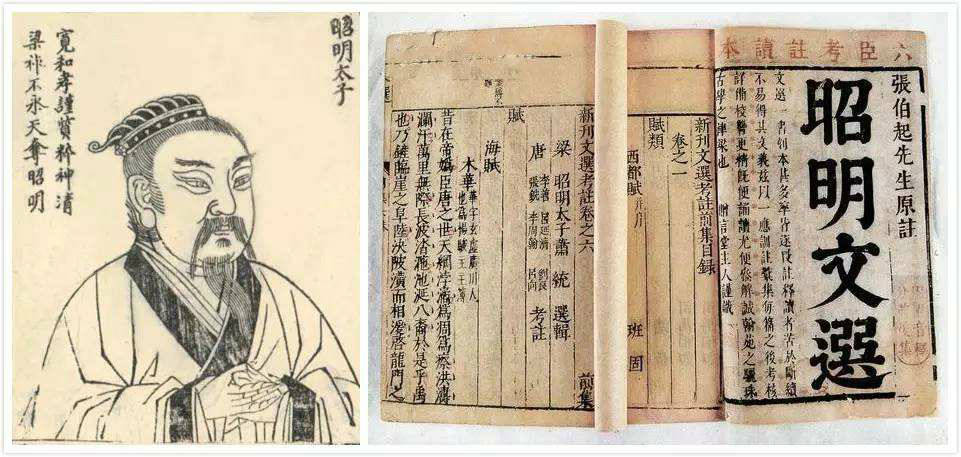 昭明太子
寬和孝謹質粹神清
梁祚不永天奪昭明
六臣考註讀本
張伯起先生原註
昭明文選
文選一書句本甚多率皆逐段註釋讀者苦於斷續
不易得其文義茲以一應訓註彙集每篇之後考核
詳備校讐更精既便誦讀尤便參解誠翰苑之驪珠
古學之津梁也 贈言堂主人謹識
新刊文選考註前集目錄
卷之一
賦類
西都賦 班固
新刊文選考註卷之六 前集
梁 昭明太子蕭統 選輯
唐 李善 呂延濟 劉良 張銑 李周翰 呂向 考註
賦
海賦
木華 華字玄虛廣川人也為楊駿主簿
昔在帝媯臣唐之世天綱浡潏為凋為瘵洪濤
瀾汗萬里無際長波涾㴔迆涎八裔於是乎禹
也乃鏟臨崖之阜陸決陂潢而相浚啓龍門之